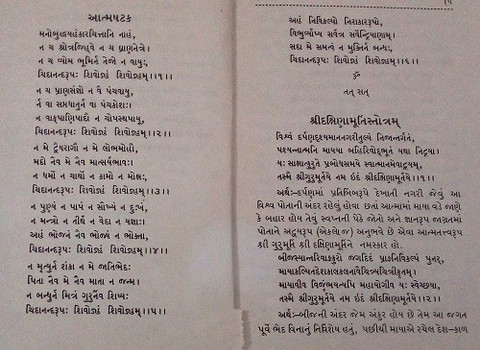 આત્મષટક
મનોબુદ્ધ્યહંકારચિત્તાનિ નાહં,
ન ચ શ્રોત્રજિહ્વે ન ચ ઘ્રાણનેત્રે।
ન ચ વ્યોમ ભૂમિર્ન તેજો ન વાયુઃ,
ચિદાનન્દરૂપઃ શિવોહં શિવોહમ્।।૧।।
ન ચ પ્રાણસંજ્ઞો ન વૈ પંચવાયુ,
ર્ન વા સપ્તધાતુર્ન વા પંચકોશઃ।
ન વાક્પાણિપાદૌ ન ચોપસ્થપાયુ,
ચિદાનન્દરૂપઃ શિવોહં શિવોહમ્।।૨।।
ન મે દ્વેષરાગૌ ન મે લોભમોહૌ,
મદો નૈવ મે નૈવ માત્સર્યભાવઃ।
ન ધર્મો ન ચાર્થો ન કામો ન મોક્ષઃ,
ચિદાનન્દરૂપઃ શિવોહં શિવોહમ્।।૩।।
ન પુણ્યં ન પાપં ન સૌખ્યં ન દુઃખં,
ન મન્ત્રો ન તીર્થં ન વેદા ન યજ્ઞાઃ।
અહં ભોજનં નૈવ ભોજ્યં ન ભોક્તા,
ચિદાનન્દરૂપઃ શિવોહં શિવોહમ્।।૪।।
ન મૃત્યુર્ન શંકા ન મે જાતિભેદઃ
પિતા નૈવ મે નૈવ માતા ન જન્મ।
ન બન્ધુર્ન મિત્રં ગુરુર્નૈવ શિષ્યઃ
ચિદાનન્દરૂપઃ શિવોહં શિવોહમ્।।૫।।
અહં નિર્વિકલ્પો નિરાકારરૂપો,
વિભુર્વ્યાપ્ય સર્વત્ર સર્વેન્દ્રિયાણામ્।
સદા મે સમત્વં ન મુક્તિર્ન બન્ધઃ,
ચિદાનન્દરૂપઃ શિવોહં શિવોહમ્।।૬।।
ૐ
તત્ સત્
શ્રીદક્ષિણામૂર્તિસ્તોત્રમ્
વિશ્વં દર્પણદૃશ્યમાનનગરીતુલ્યં નિજાન્તર્ગતં,
પશ્યન્નાત્મનિ માયયા બહિરિવોદ્ભૂતં યથા નિદ્રયા।
યઃ સાક્ષાત્કુરુતે પ્રબોધસમયે સ્વાત્માનમેવાદ્વયમ્,
તસ્મૈ શ્રીગુરુમૂર્તયે નમ ઇદં શ્રીદક્ષિણામૂર્તયે।।૧।।
અર્થઃ-દર્પણમાં પ્રતિબિંબરૂપે દેખાતી નગરી જેવું આ
વિશ્વ પોતાની અંદર રહેલું હોવા છતાં આત્મામાં માયા વડે જાણે
કે બહાર હોય તેવું સ્વપ્નની પેઠે જોતો અને જ્ઞાનરૂપ જાગ્રતમાં
પોતાને અદ્વયરૂપ (એકલાજ) અનુભવે છે એવા આત્મતત્ત્વરૂપ
શ્રી ગુરુમૂર્તિ શ્રી દક્ષિણામૂર્તિને નમસ્કાર હો.
બીજસ્યાન્તરિવાંકુરો જગદિદં પ્રાઙ્નર્વિકલ્પં પુનર્,
માયાકલ્પિતદેશકાલકલનાવૈચિત્ર્યચિત્રીકૃતમ્।
માયાવીવ વિજૃંભયત્યપિ મહાયોગીવ યઃ સ્વેચ્છયા,
તસ્મૈ શ્રીગુરુમૂર્તયે નમ ઇદં શ્રીદક્ષિણામૂર્તયે।।૨।।
અર્થઃ-બીજની અંદર જેમ અંકુર હોય છે તેમ આ જગત
પૂર્વે ભેદ વિનાનું નિર્વિશેષ હતું, પછીથી માયાએ રચેલ દેશ-કાળ